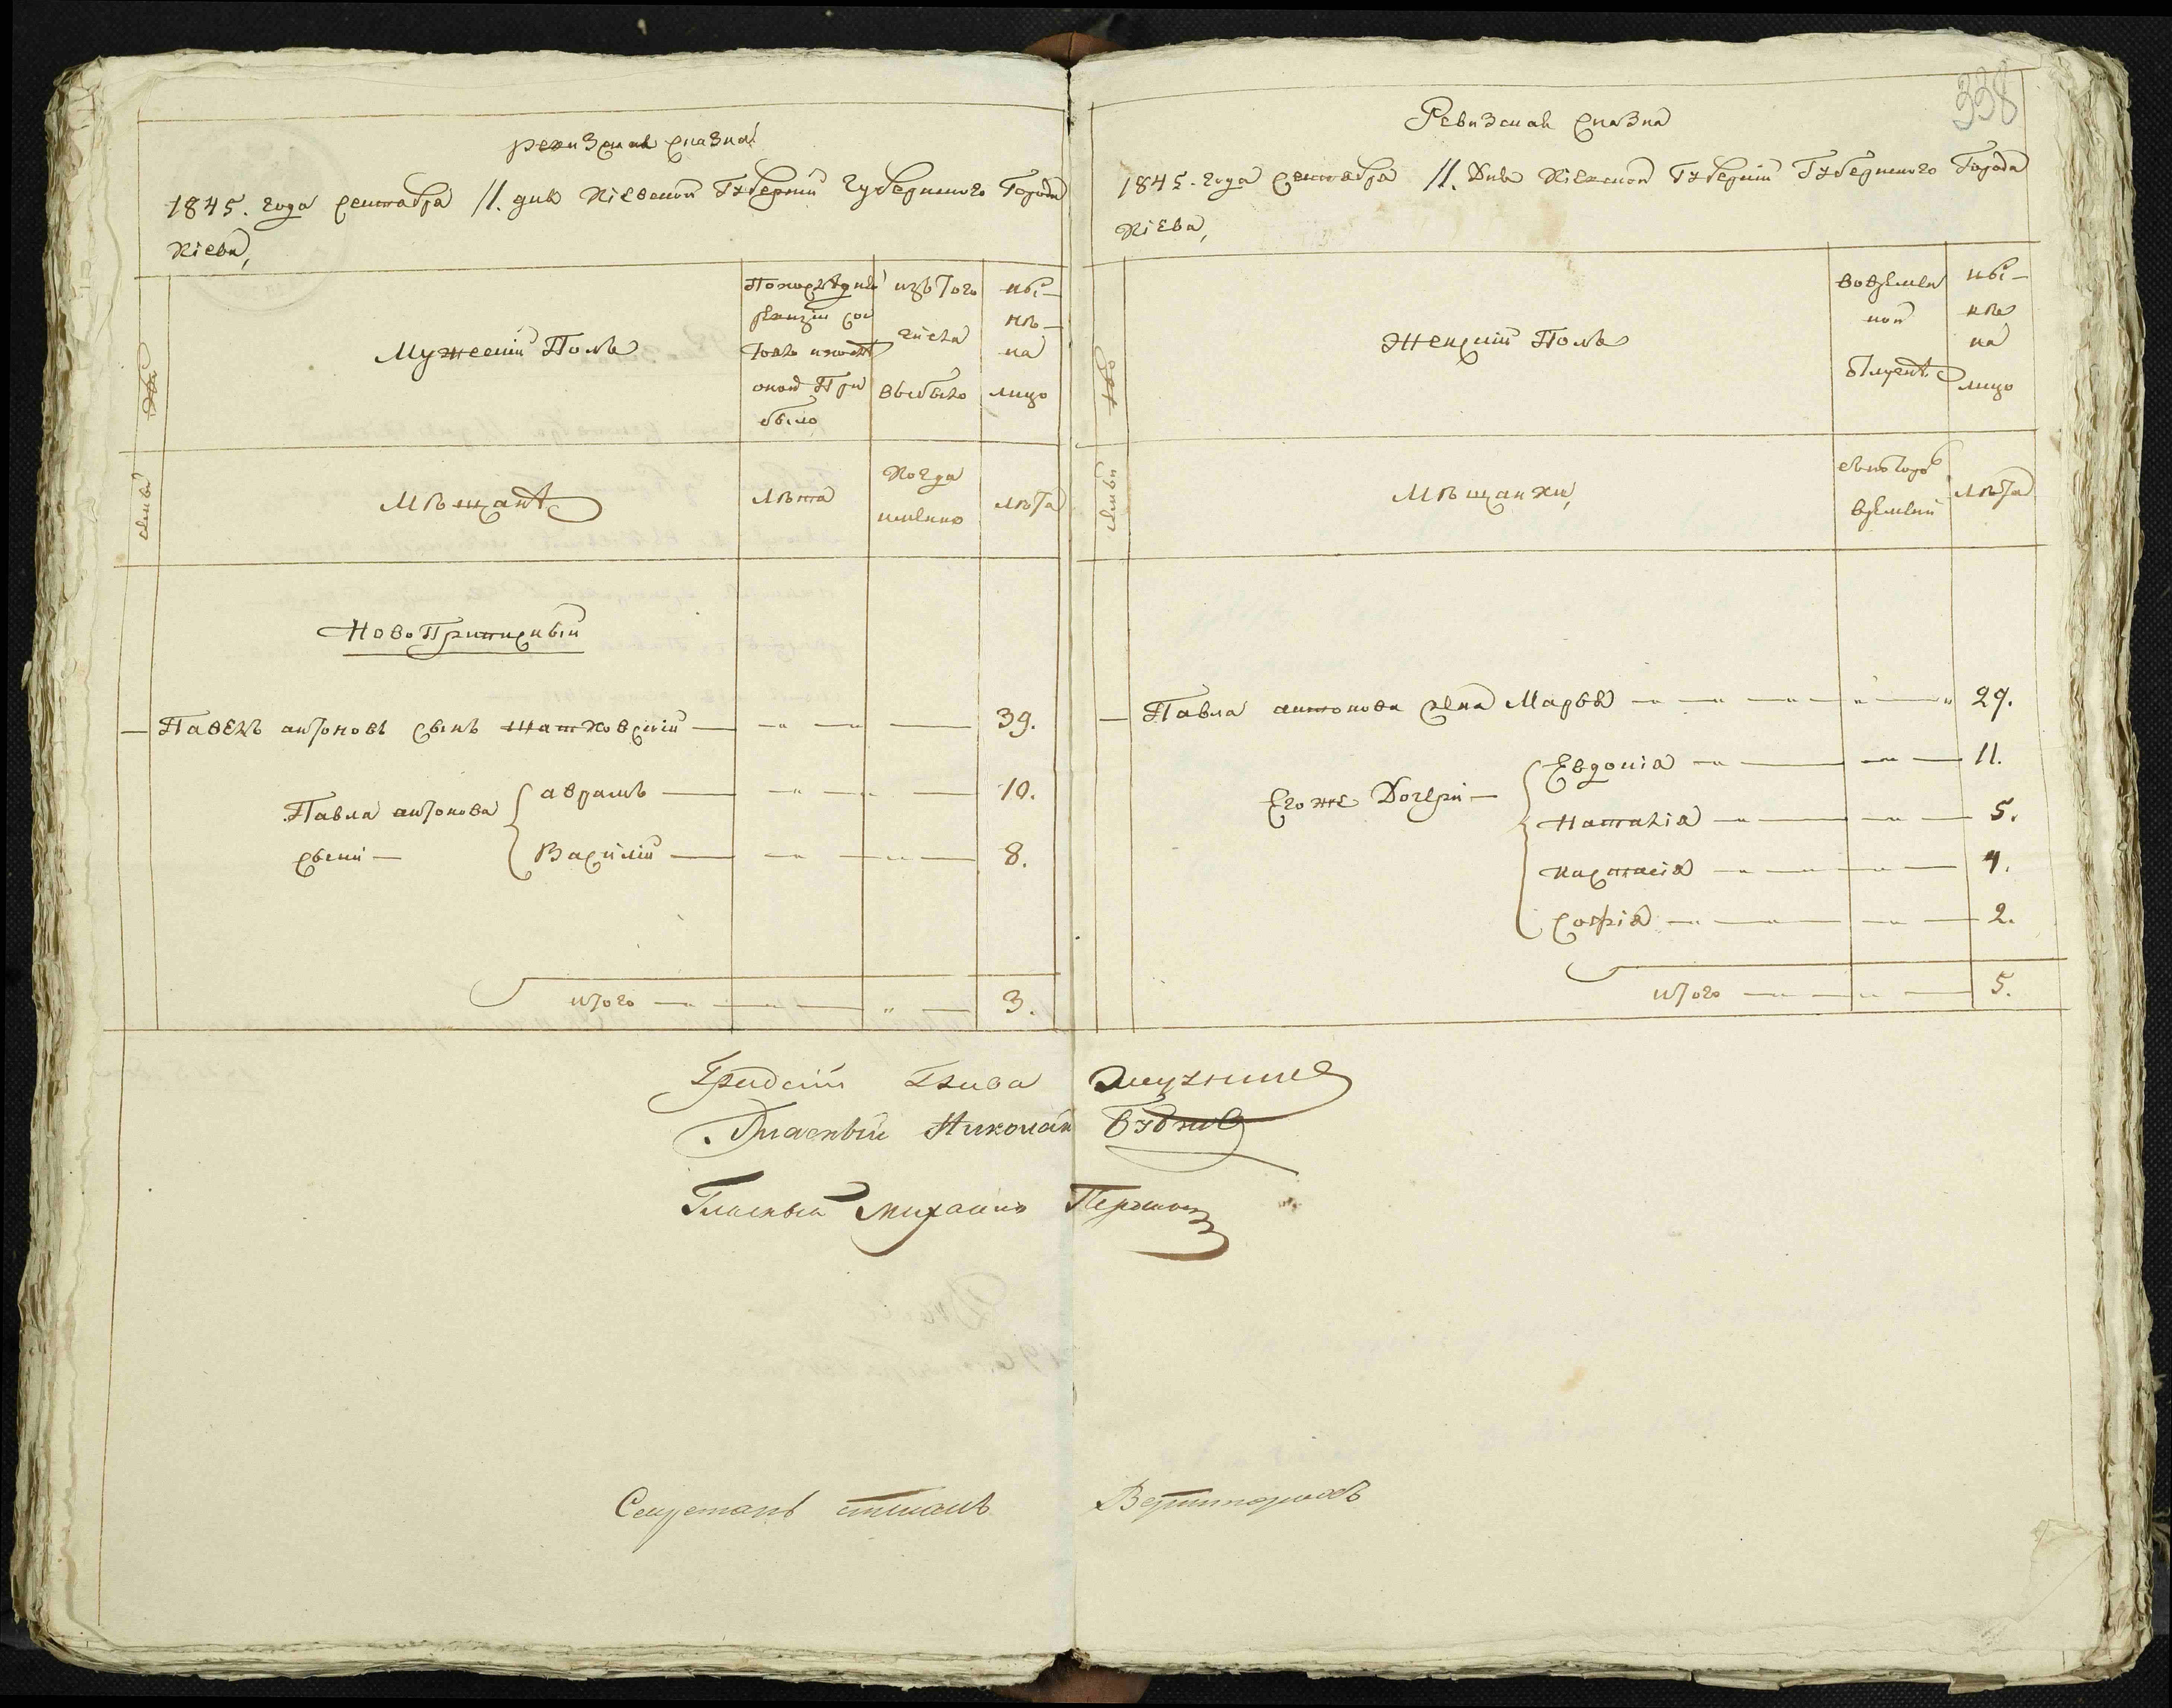 ревизская сказка
1845. года сентября 11. дня Кіевской Губерніи Губернскаго Города
Кіева,
№
Мужескій Полъ
По последней ревизіи состояло и после оной Прибыло
изъ Того числа выбыло
ны-
нѣ-
на
лицо
семьи
Мѣщанѣ
Лѣта
Когда именно
Лѣта
НовоПриписный
Павелъ антоновъ сынъ Шатковскій — 39.
Павла антонова сыни —
аврамъ — 10.
Василій — 8.
итого — 3.
338
Ревизская Сказка
1845. года Сентября 11. Дня Кіевской Губерніи Губернскаго Города
Кіева,
№
Женскій Полъ
Во временной Отлучкѣ
ны-
нѣ
на
лицо
семьи
Мѣщанки,
съ котораго времени
Лѣта
Павла антонова жена Марья — 29.
Его же Дочери —
Евдокія — 11.
Наталія — 5.
настасія — 4.
софія — 2.
итого — 5.
Градскій Глава
Гласный Николай
Гласный Михаилъ
Секретарь